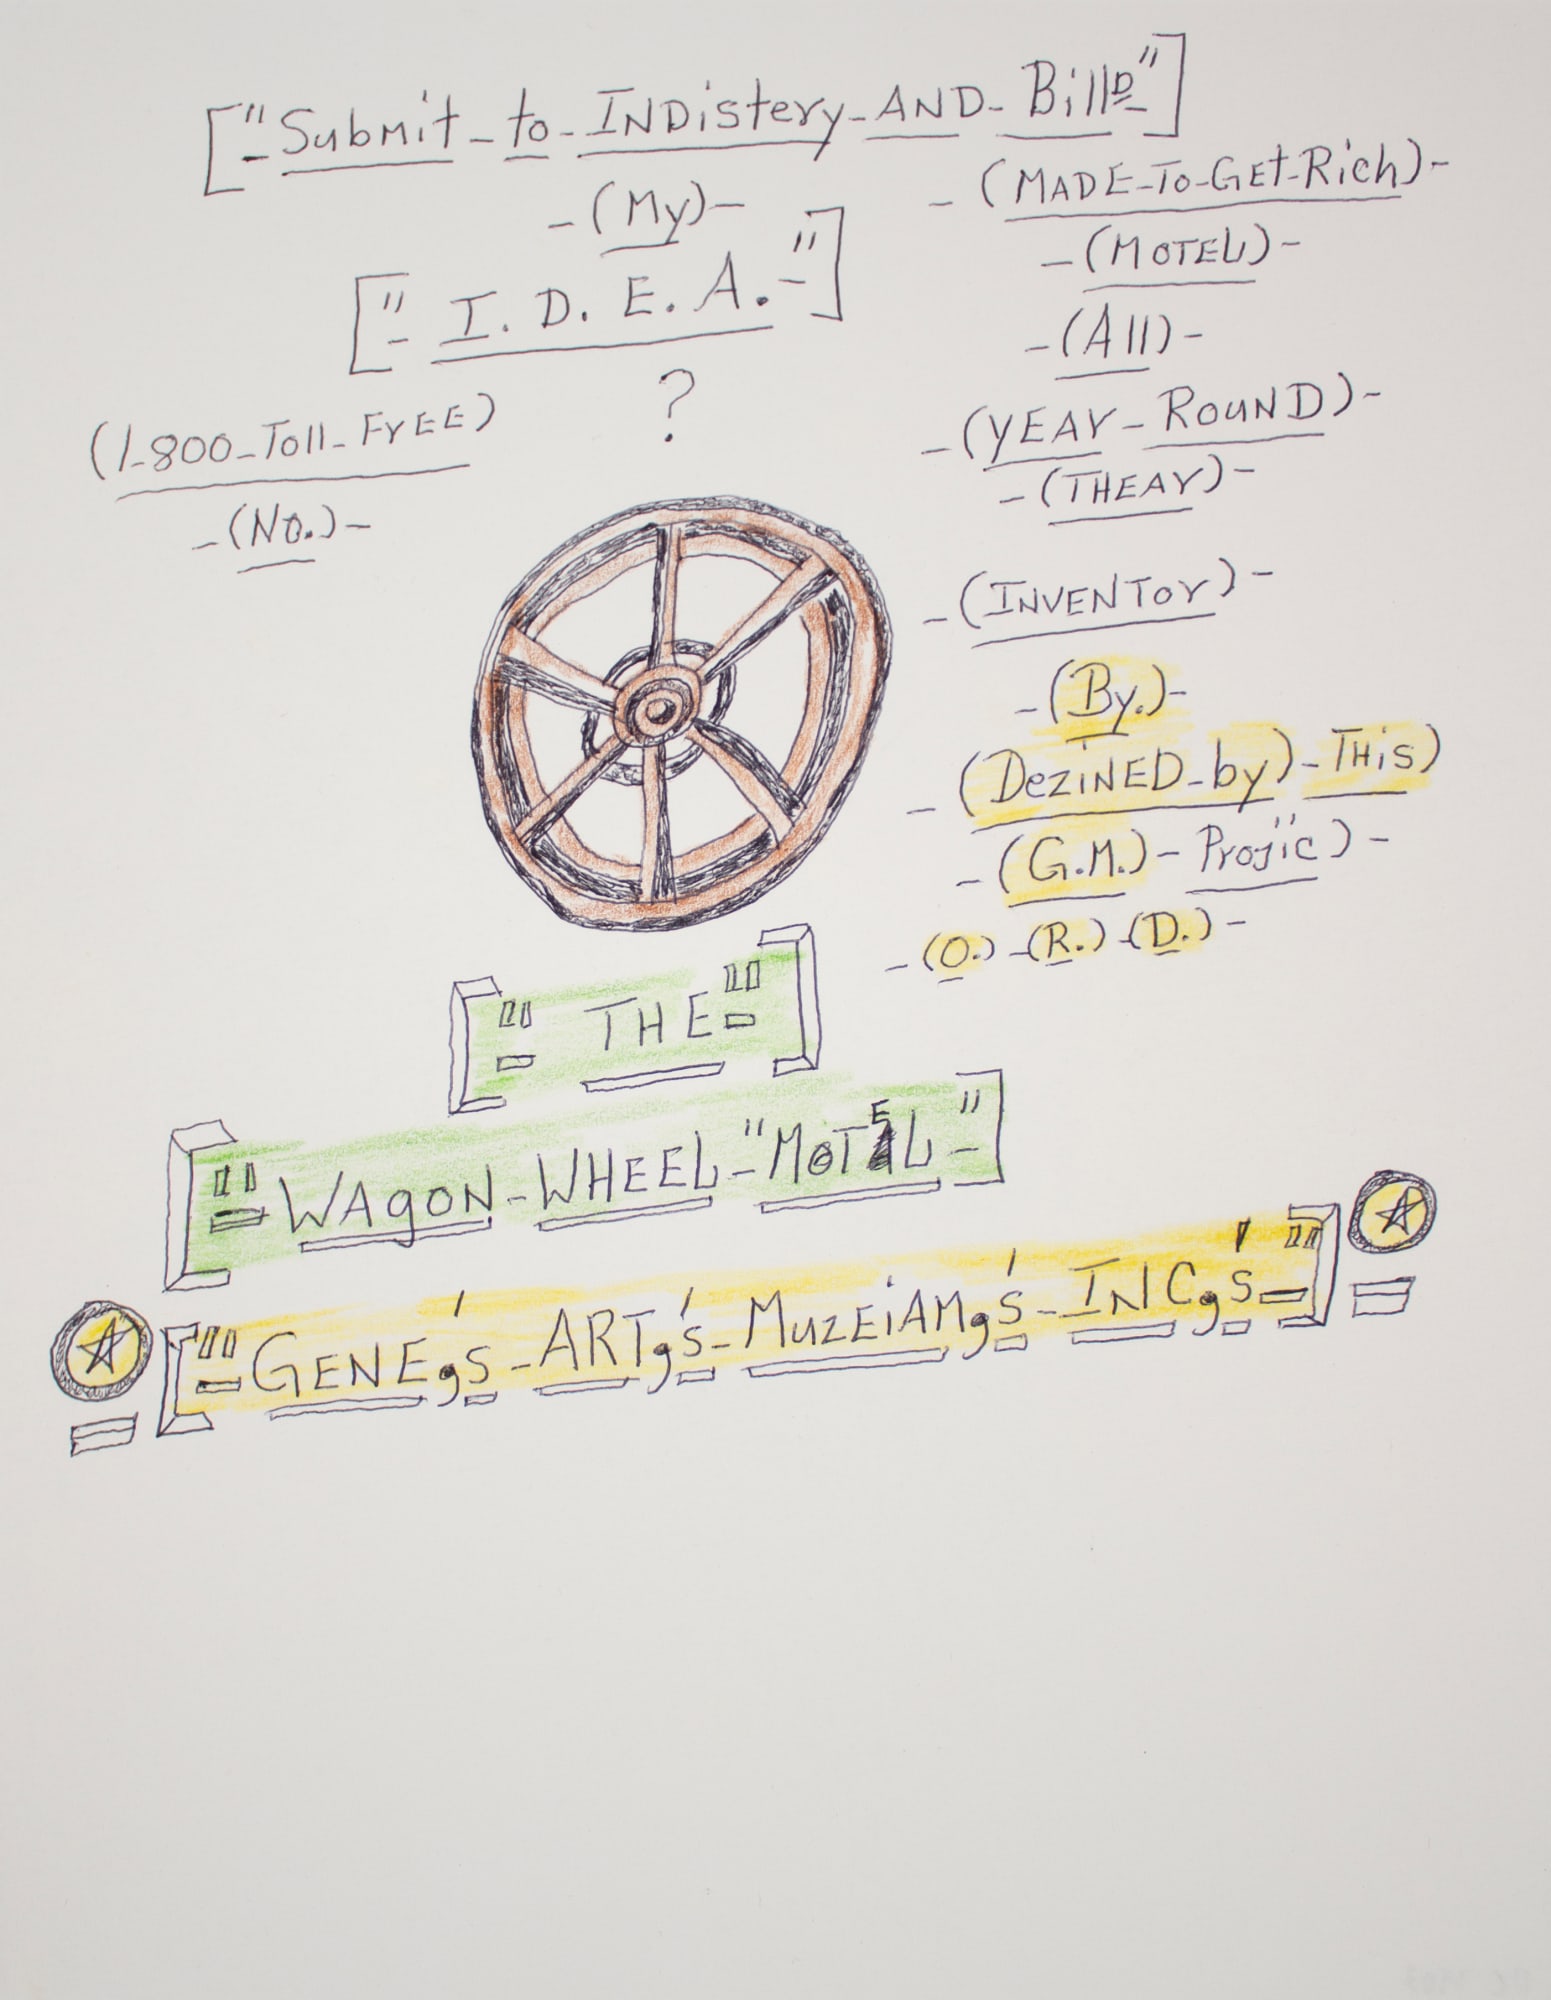 ["-Submit-to-INDistery-AND-BillD-"]
-(My)-
["-I. D. E. A.-"]
?
(1-800-Toll-FrEE)
-(No.)-
-(MADE-To-GEt-Rich)-
-(MOTEL)-
-(All)-
-(YEAr-ROUND)-
-(THEAr)-
-(INVENTOr)-
-(By.)-
-(DeziNED-by)-THis)
-(G.M.)-Projic)-
-(O.)-(R.)-(D.)-
["- THE-"]
["=WAgON-WHEEL-"MOTEL-"]
["-GENE,'s-ART,'s-MuzEiAM,'s-INC,'s-"]